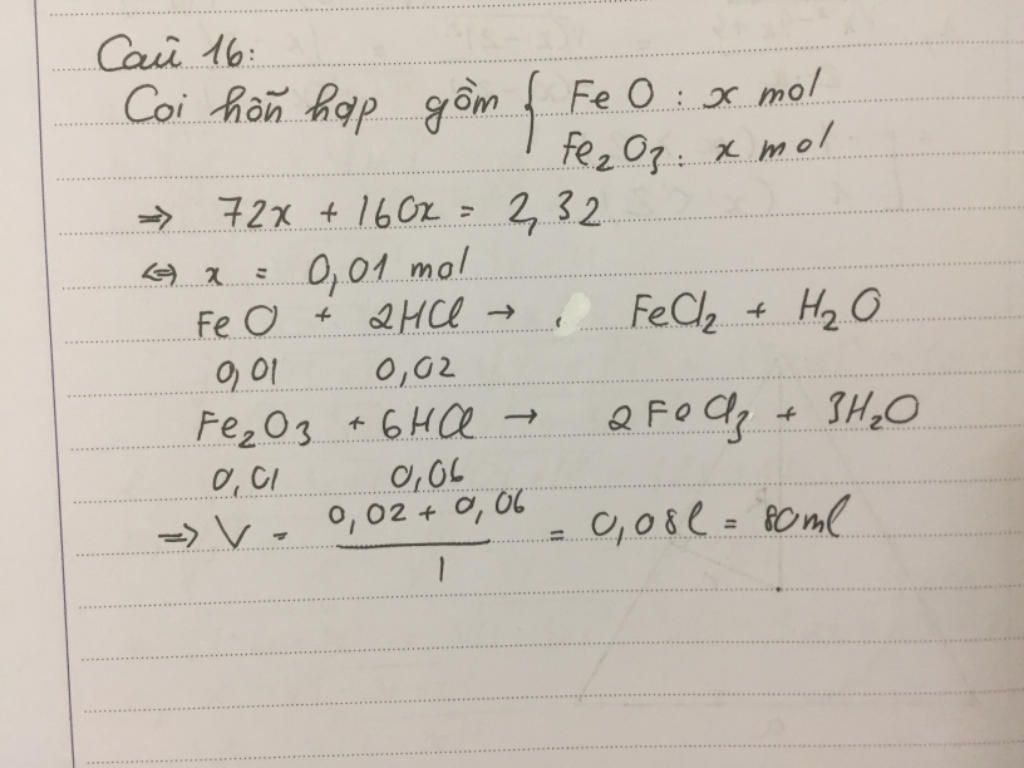 Câu 16:
Coi hỗn hợp gồm { FeO : x mol
Fe₂O₃ : x mol
⇒ 72x + 160x = 2,32
⇔ x = 0,01 mol
FeO + 2HCl → FeCl₂ + H₂O
0,01 0,02
Fe₂O₃ + 6HCl → 2FeCl₃ + 3H₂O
0,01 0,06
⇒ V = (0,02 + 0,06) / 1 = 0,08l = 80ml